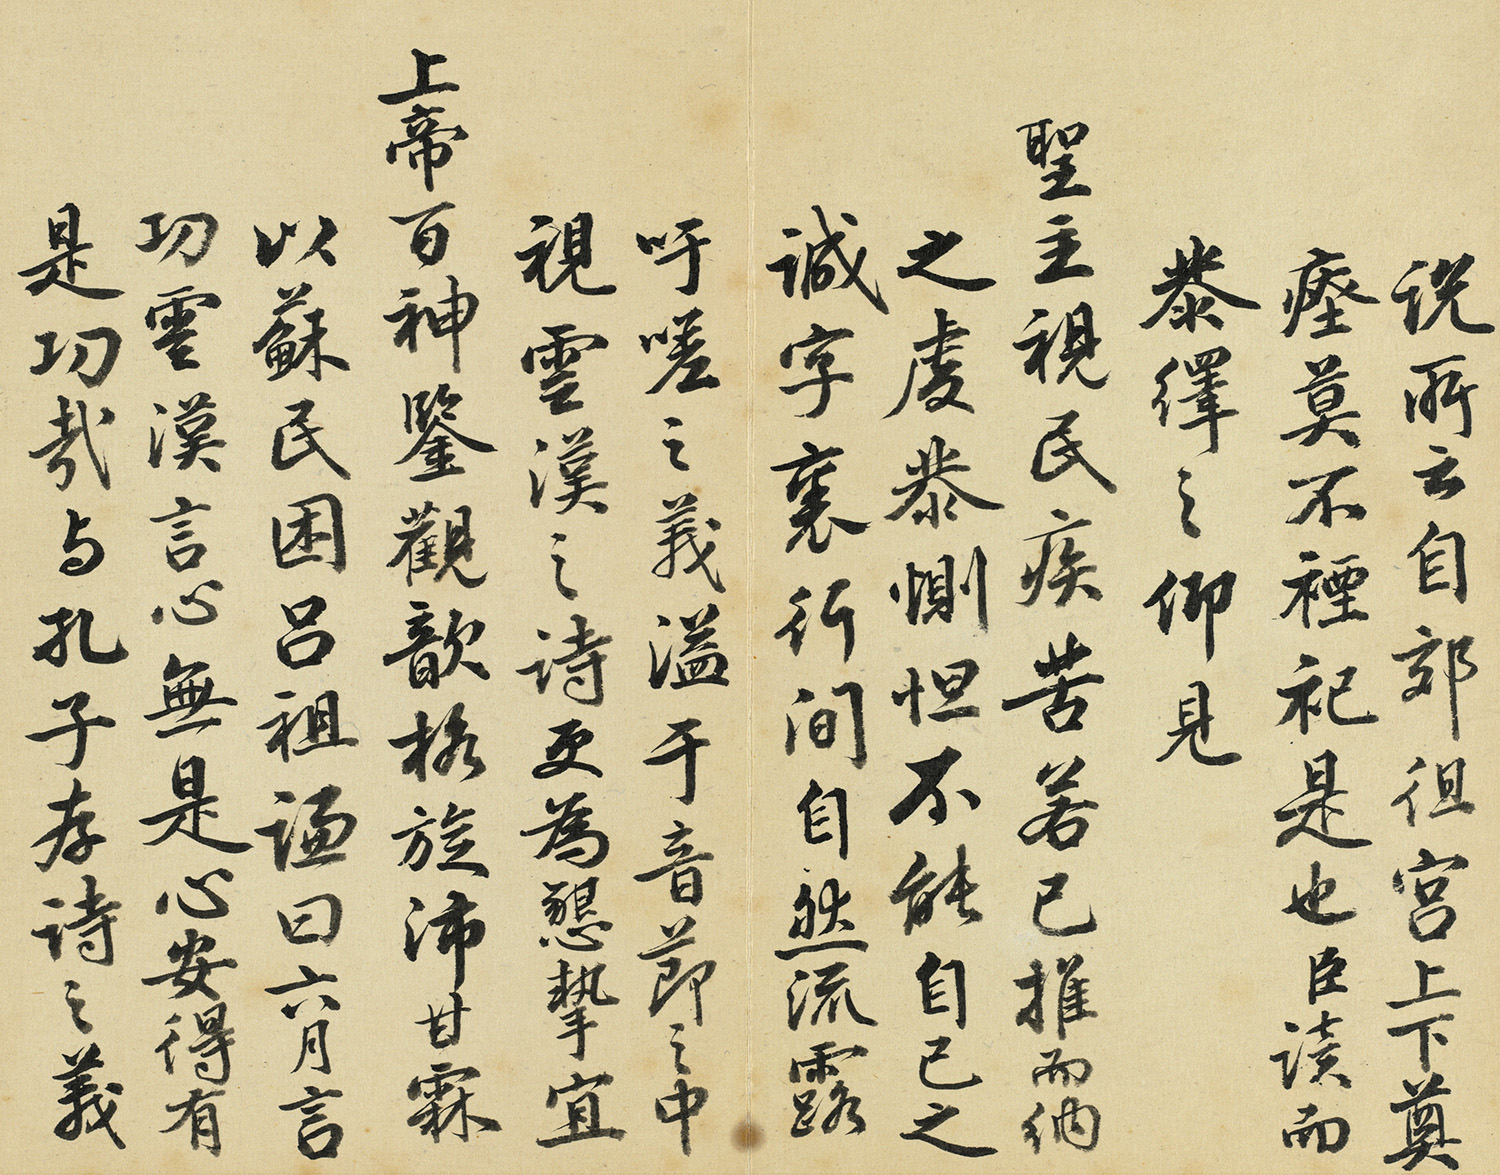 说所云自郊徂宫上下奠
瘞莫不禋祀是也臣读而
恭繹之仰見
聖主視民疾苦若已推而納
之虔恭惻怛不能自已之
誠字裏行间自然流露
吁嗟之義溢于音節之中
視雲漢之詩更為懇摯宜
上帝百神鑒觀歆格旋沛甘霖
以蘇民困呂祖謙曰六月言
功雲漢言心無是心安得有
是功哉与孔子存詩之義